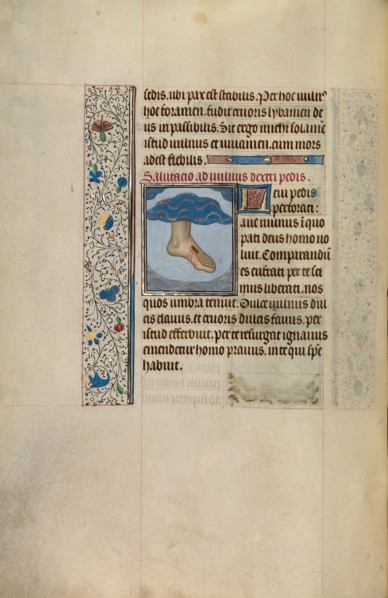 sedis. ubi pax est stabilis. Per hoc vulnus
hoc foramen. fudit cruoris lybamen de
us inpassibilis. Sit ergo michi solamē
istud vulnus et iuuamen. cum mors
adest flebilis.
Salutacio ad vulnus dextri pedis.
pedis
perforati:
aue vulnus ī quo
pati deus homo vo
luit. Comparandū
es
mus liberati. nos
quos umbra tenuit. Dulce vulnus dul
cis clauus. et cruoris dulcis fauus. per
istud efferbuit. per te resurgat ignauus
emendetur homo prauus. in te qui spē
habuit.